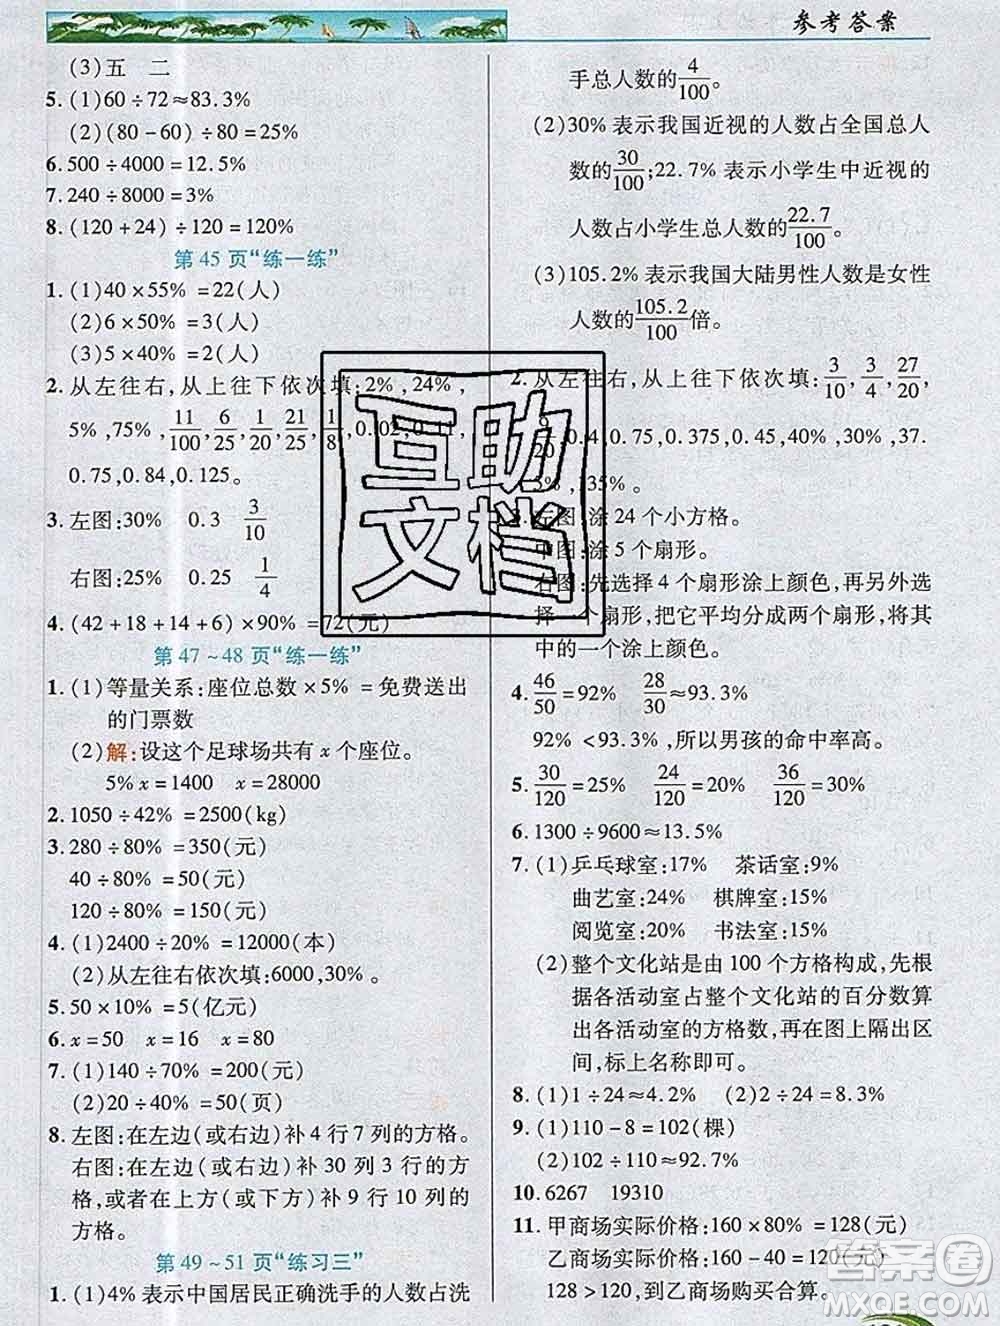 参考答案
(3)五 二
5. (1)60÷72≈83.3%
(2)(80-60)÷80=25%
6. 500÷4000=12.5%
7. 240÷8000=3%
8. (120+24)÷120=120%
第 45 页“练一练”
1. (1)40×55%=22(人)
(2)6×50%=3(人)
(3)5×40%=2(人)
2. 从左往右,从上往下依次填:2%,24%,
5%,75%,11/100,6/25,1/20,21/25,1/8,0.02,0.11,
0.75,0.84,0.125。
3. 左图:30% 0.3 3/10
右图:25% 0.25 1/4
4. (42+18+14+6)×90%=72(元)
第 47~48 页“练一练”
1. (1)等量关系:座位总数×5%=免费送出
的门票数
(2)解:设这个足球场共有 x 个座位。
5%x=1400 x=28000
2. 1050÷42%=2500(kg)
3. 280÷80%=350(元)
40÷80%=50(元)
120÷80%=150(元)
4. (1)2400÷20%=12000(本)
(2)从左往右依次填:6000,30%。
5. 50×10%=5(亿元)
6. x=50 x=16 x=80
7. (1)140÷70%=200(元)
(2)20÷40%=50(页)
8. 左图:在左边(或右边)补 4 行 7 列的方格。
右图:在左边(或右边)补 30 列 3 行的方
格,或者在上方(或下方)补 9 行 10 列的
方格。
第 49~51 页“练习三”
1. (1)4%表示中国居民正确洗手的人数占洗
手总人数的4/100。
(2)30%表示我国近视的人数占全国总人
数的30/100;22.7%表示小学生中近视的
人数占小学生总人数的22.7/100。
(3)105.2%表示我国大陆男性人数是女性
人数的105.2/100倍。
2. 从左往右,从上往下依次填:3/10,3/4,27/20,
9/20,0.4,0.75,0.7,0.45,40%,30%,37.
5%,135%。
3. 左图:涂 24 个小方格。
中图:涂 5 个扇形。
右图:先选择 4 个扇形涂上颜色,再另外选
择一个扇形,把它平均分成两个扇形,将其
中的一个涂上颜色。
4. 46/50=92% 28/30≈93.3%
92%<93.3%,所以男孩的命中率高。
5. 30/120=25% 24/120=20% 36/120=30%
6. 1300÷9600≈13.5%
7. (1)乒乓球室:17% 茶话室:9%
曲艺室:24% 棋牌室:15%
阅览室:20% 书法室:15%
(2)整个文化站是由 100 个方格构成,先
根据各活动室占整个文化站的百分数算
出各活动室的方格数,再在图上隔出区
间,标上名称即可。
8. (1)1÷24≈4.2% (2)2÷24≈8.3%
9. (1)110-8=102(棵)
(2)102÷110≈92.7%
10. 6267 19310
11. 甲商场实际价格:160×80%=128(元)
乙商场实际价格:160-40=120(元)
128>120,到乙商场购买合算。
互助
文档
答案圈
MXQE.COM